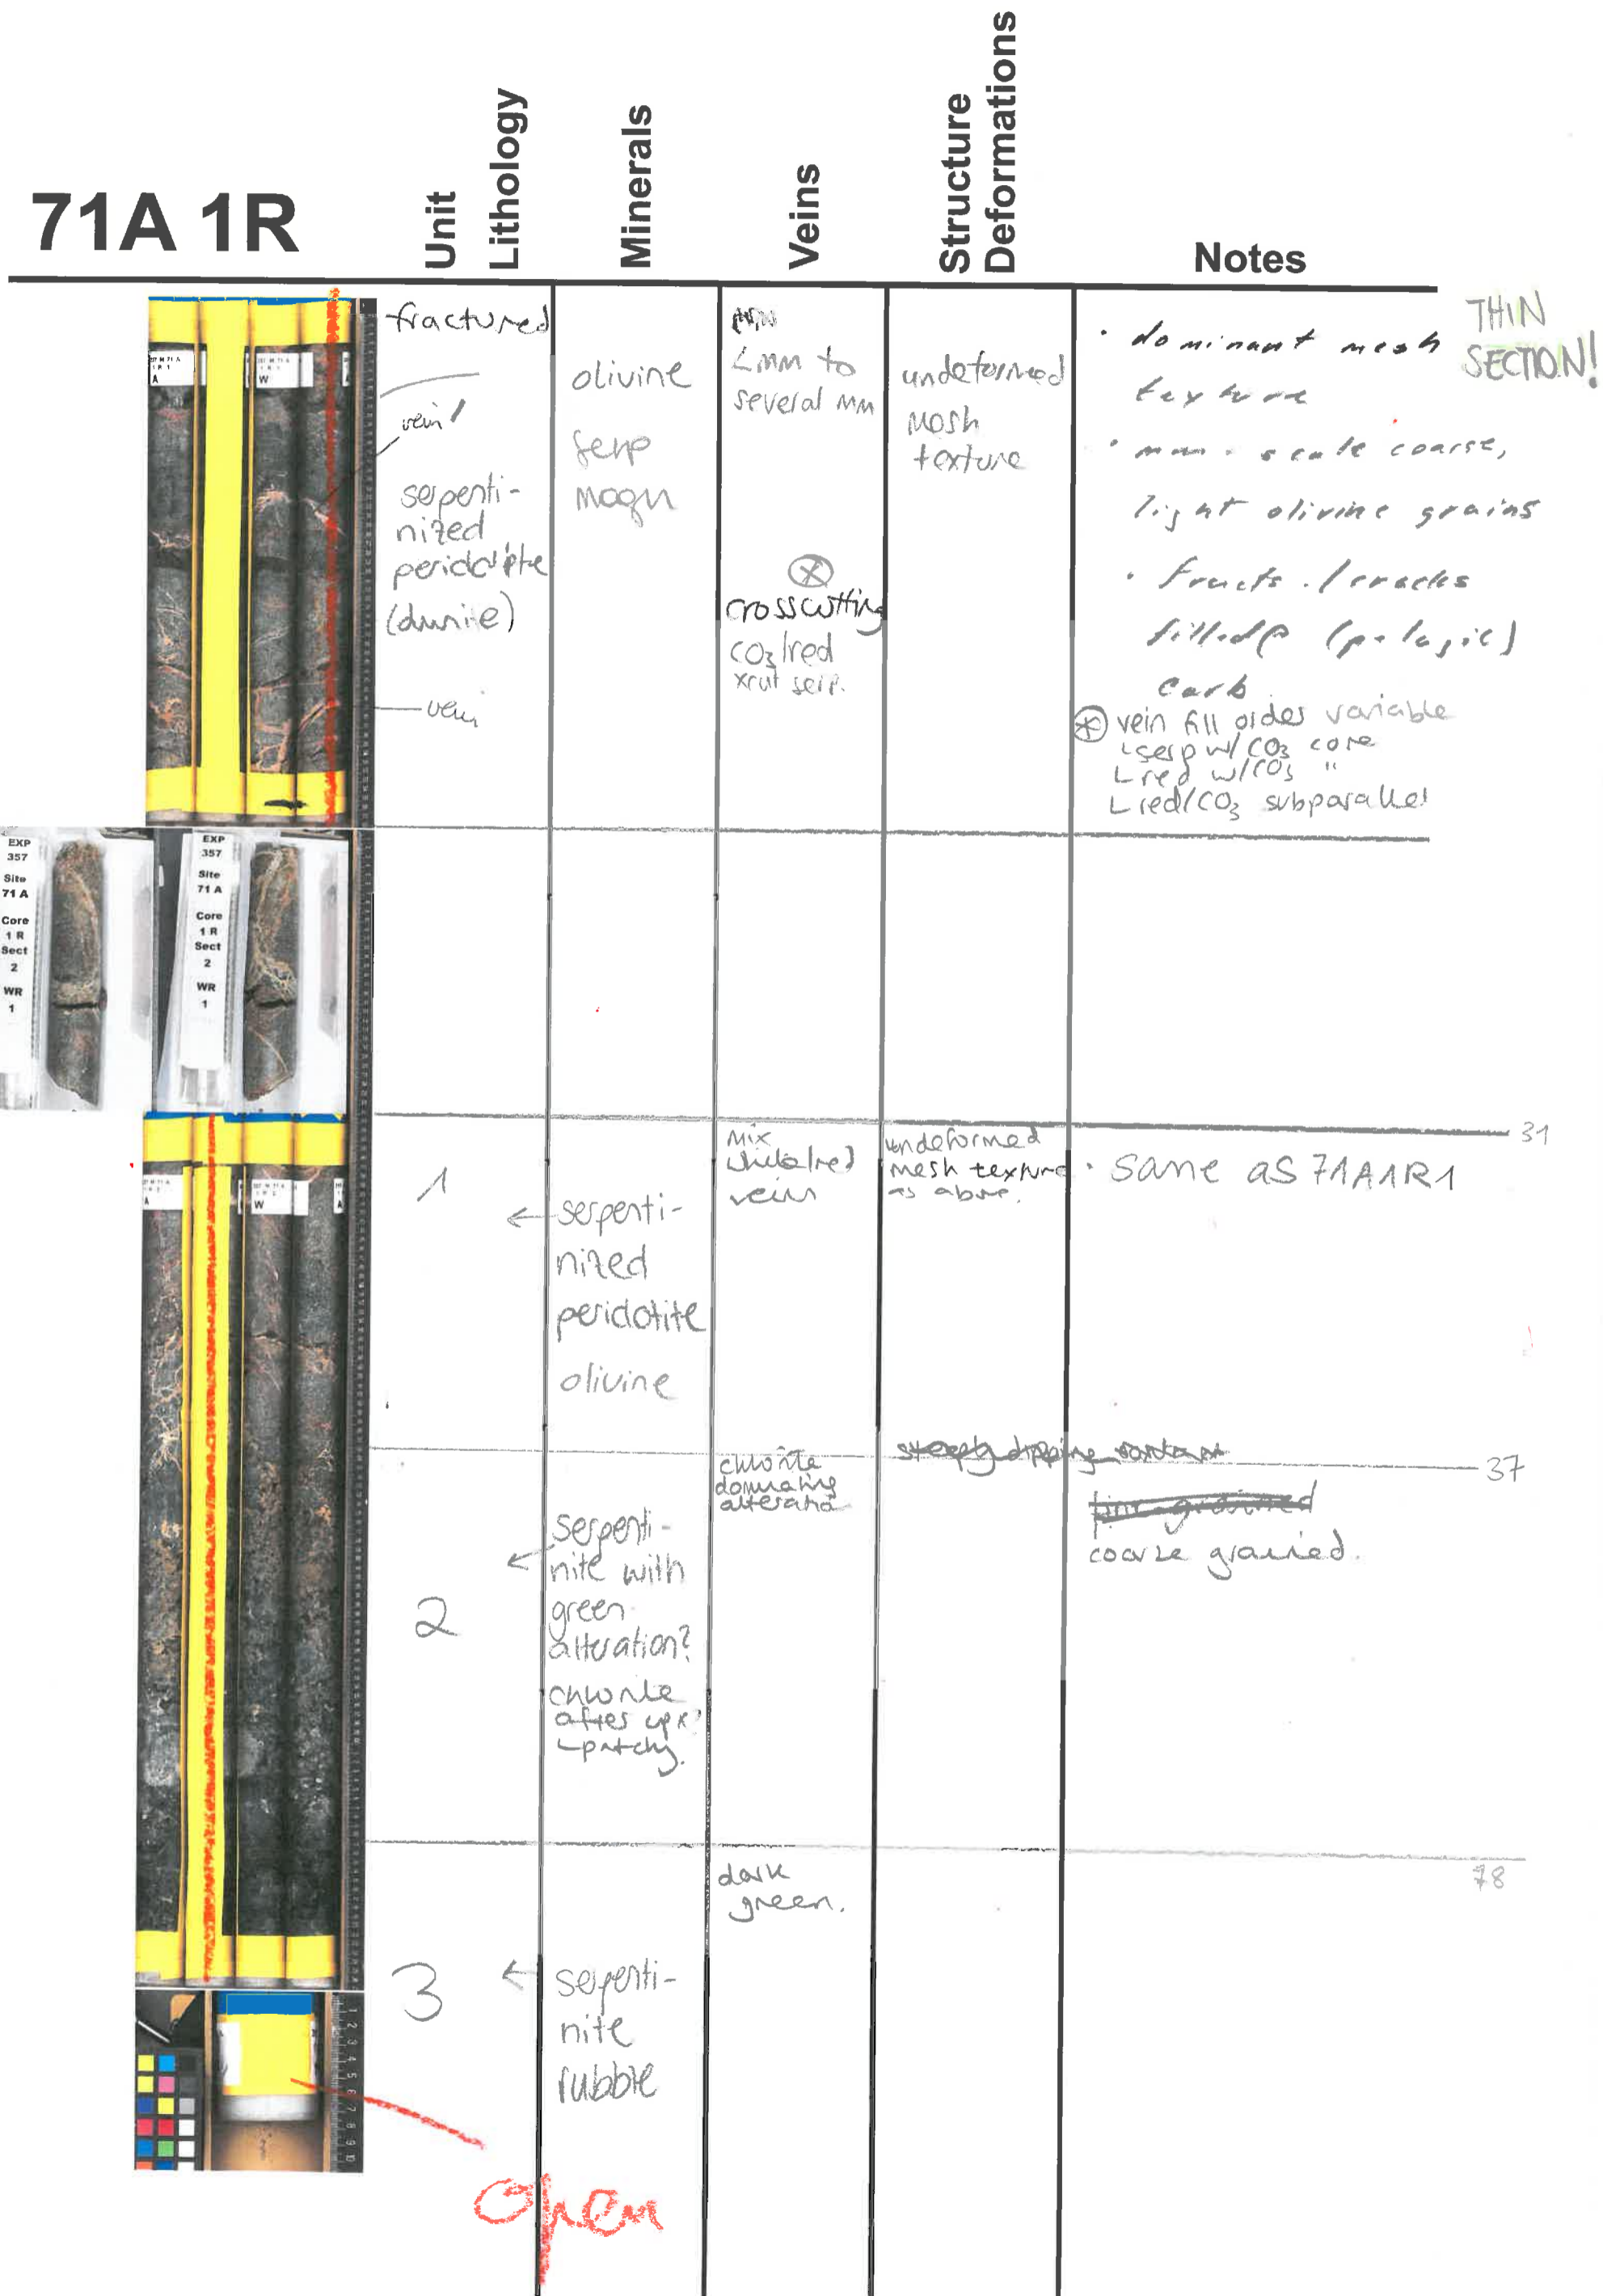 71A 1R
Unit
Lithology
Minerals
Veins
Structure
Deformations
Notes
fractured
vein
serpenti-
nized
peridotite
(dunite)
vein
olivine
serp
magn
<mm to
several mm
⊗
crosscutting
CO3/red
xcut serp.
undeformed
mesh
texture
· dominant mesh
texture
· mm-scale coarse,
light olivine grains
· fracts./cracks
filled (pelagic)
carb
⊗ vein fill order variable
└ serp w/ CO3 core
└ red w/ CO3 "
└ red/CO3 subparallel
THIN
SECTION!
EXP
357
Site
71 A
Core
1 R
Sect
2
WR
1
EXP
357
Site
71 A
Core
1 R
Sect
2
WR
1
31
1
← serpenti-
nized
peridotite
olivine
Mix
white/red
veins
undeformed
mesh texture
as above.
· same as 71A1R1
37
2
← serpenti-
nite with
green
alteration?
chlorite
after cpx?
└ patchy.
chlorite
dominating
alteration
steeply dipping
fine-grained
coarse grained.
78
3
← serpenti-
nite
rubble
dark
green.
Open
1 2 3 4 5 6 7 8 9 10